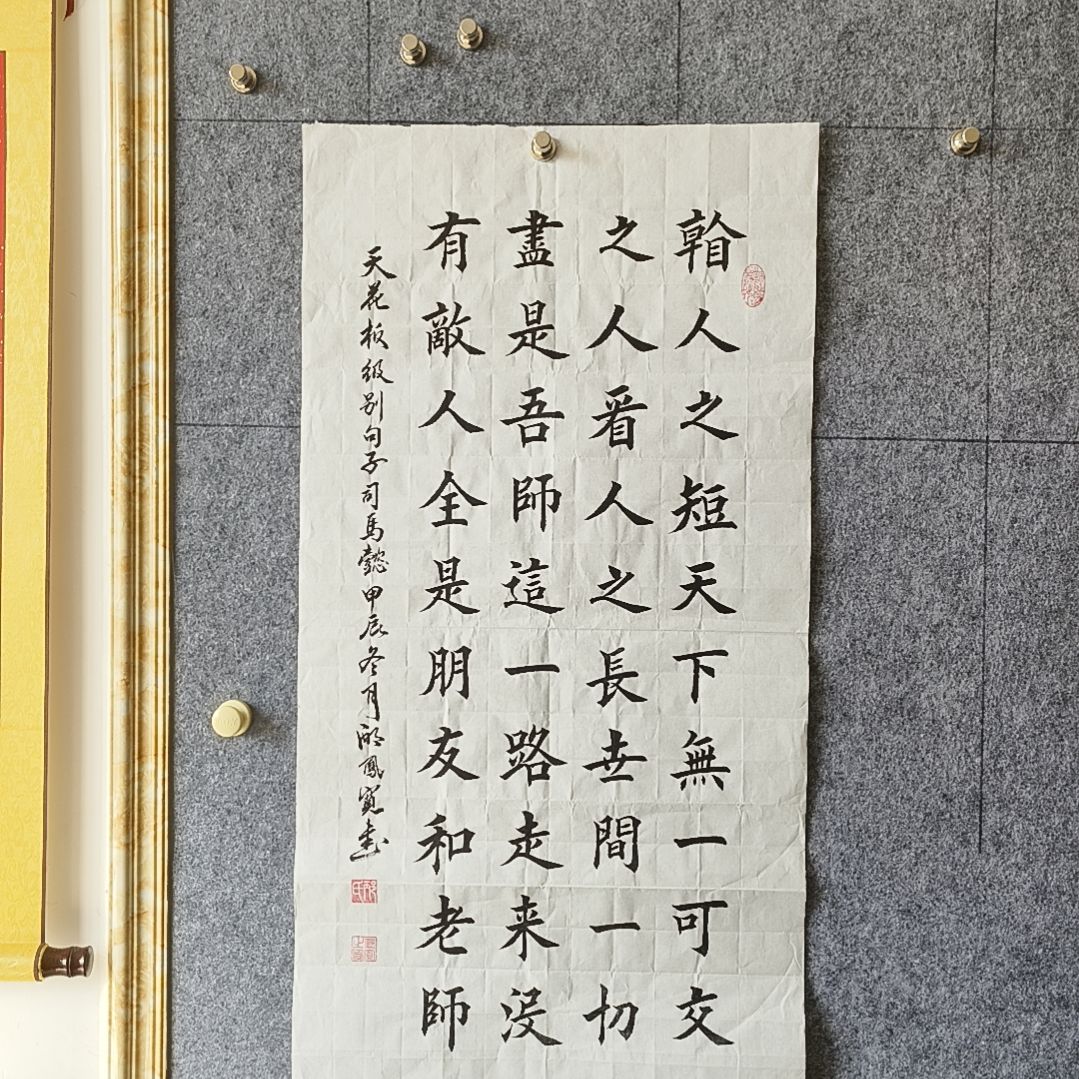 人之短天下無一可交
之人看人之長世間一切
盡是吾師這一路走来没
有敵人全是朋友和老師
天花板级别句子司馬懿甲辰冬月鳳書